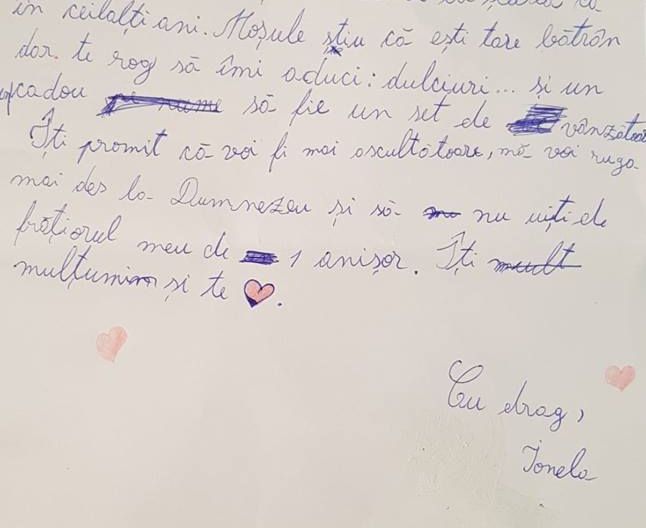 în ceilalți ani. Moșule știu că ești tare bătrân
dar te rog să îmi aduci: dulciuri... și un
cadou să fie un set de vânzătoare
Îți promit că voi fi mai ascultătoare, mă voi ruga
mai des la Dumnezeu și să nu uiți de
frățiorul meu de 1 anișor. Îți mult
mulțumim și te ♥.
Cu drag,
Ionela